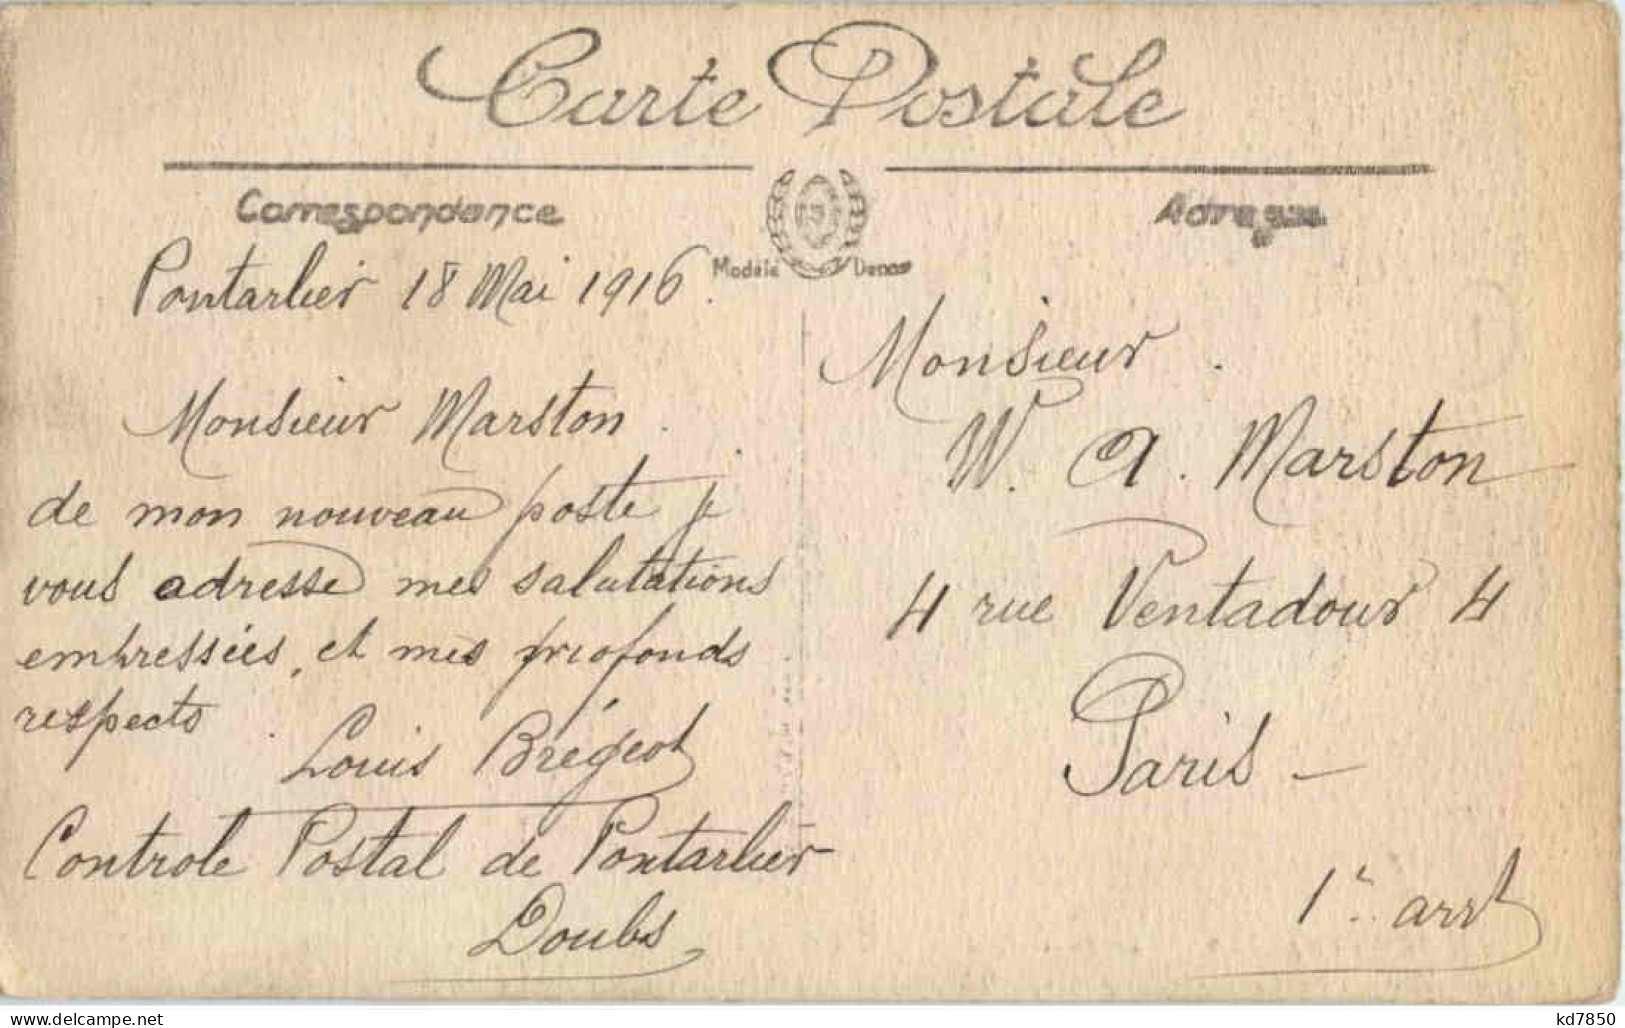 Carte Postale
Correspondance
Adresse
Modèle
Pontarlier 18 Mai 1916.
Monsieur Marston.
de mon nouveau poste j'
vous adresse mes salutations
empressées, et mes profonds
respects.
Louis Brégeot
Controle Postal de Pontarlier
Doubs
Monsieur.
W. A. Marston
4 rue Ventadour 4
Paris -
1r. arrt
www.delcampe.net
kd7850